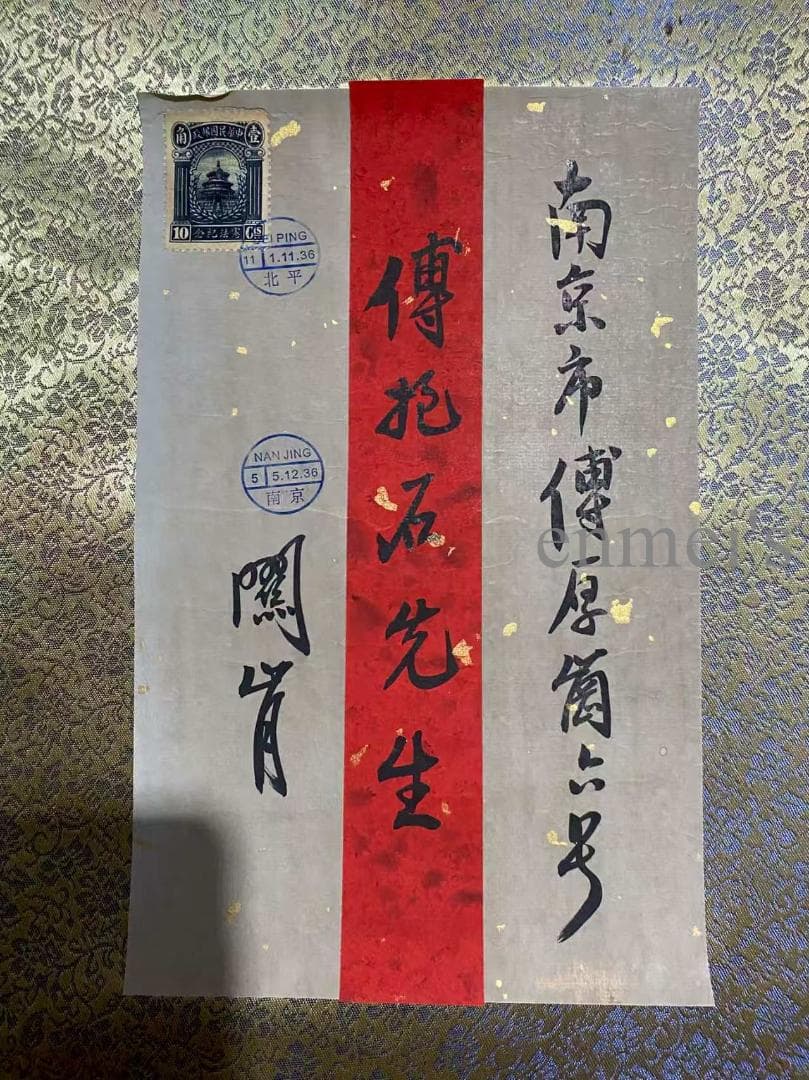 南京市傅厚崗六号
傅抱石先生
關山月
中華民國郵政
壹角
憲法紀念
10 Cts
PING
11 1.11.36
北平
NAN JING
5 5.12.36
南京
enmei's